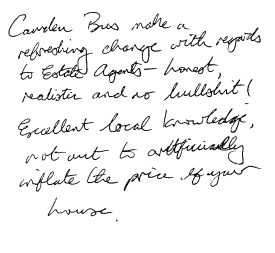 Camden Bus make a
refreshing change with regards
to Estate Agents - honest,
realistic and no bullshit!
Excellent local knowledge,
not out to artificially
inflate the price of your
house.